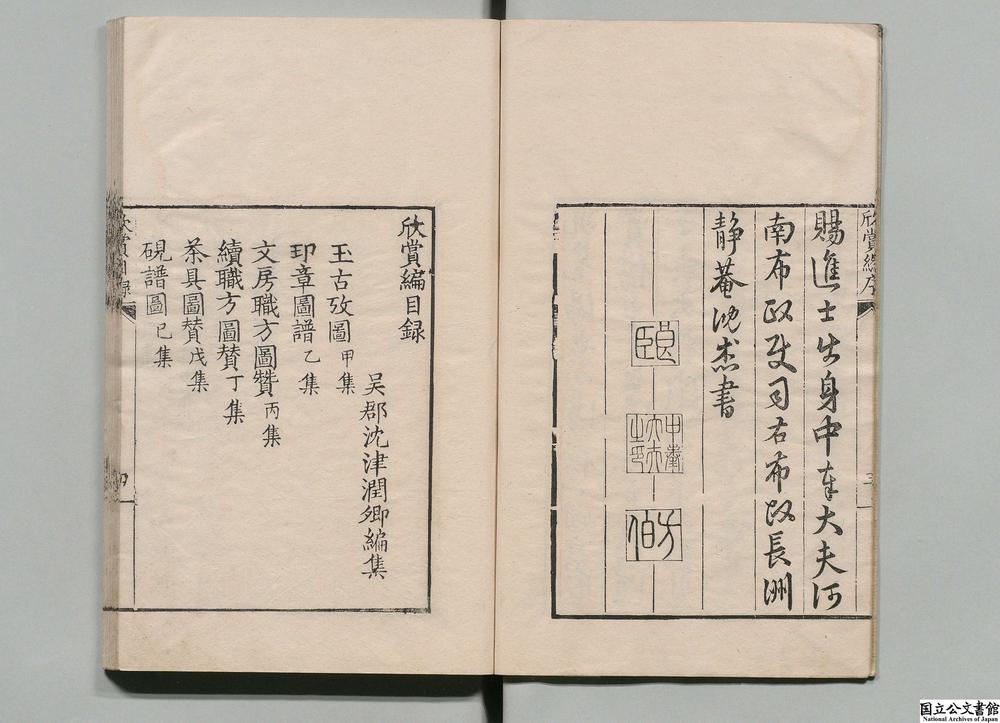 欣賞編序
賜進士出身中奉大夫河
南布政使司右布政長洲
静菴沈杰書
中奉大夫之印
方伯
三
欣賞編目録
吴郡沈津潤卿編集
玉古攷圖甲集
印章圖譜乙集
文房職方圖贊丙集
續職方圖賛丁集
茶具圖賛戊集
硯譜圖已集
欣賞目録
四
国立公文書館
National Archives of Japan